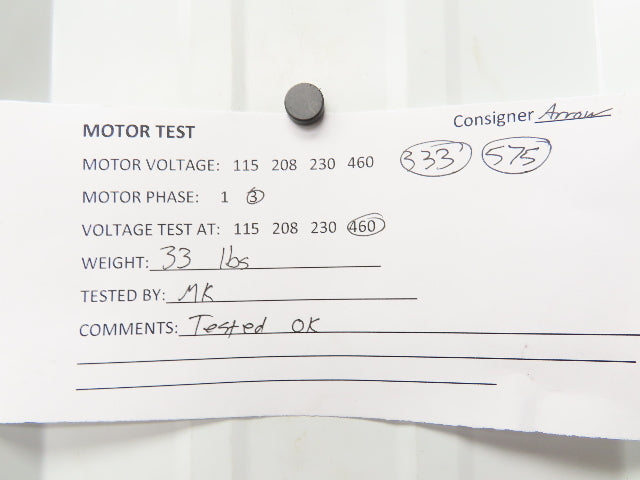 Consigner Arrow
MOTOR TEST
MOTOR VOLTAGE: 115 208 230 460 333 575
MOTOR PHASE: 1 3
VOLTAGE TEST AT: 115 208 230 460
WEIGHT: 33 lbs
TESTED BY: MK
COMMENTS: Tested OK